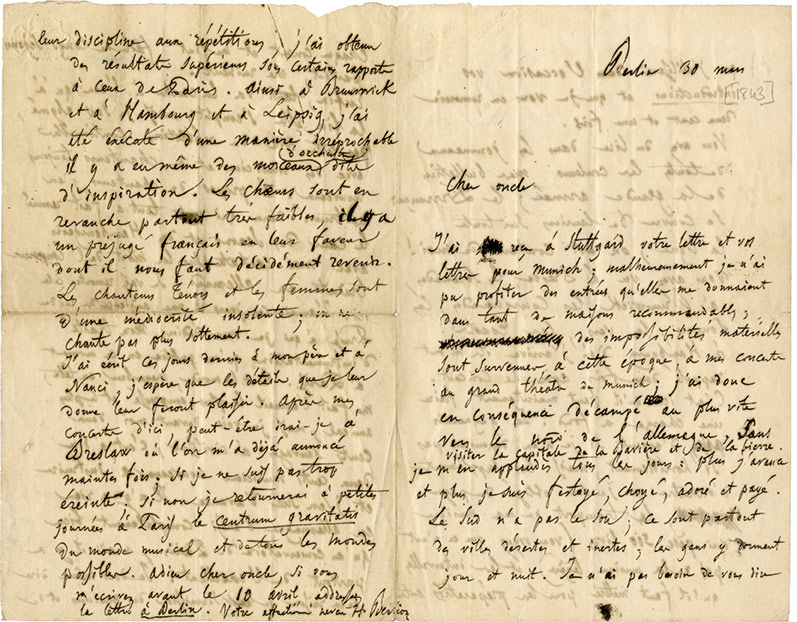 Berlin 30 mars
[1843]
Cher oncle
J'ai reçu à Stuttgard votre lettre et vos
lettres pour Munich ; malheureusement je n'ai
pu profiter des entrées qu'elles me donnaient
dans tant de maisons recommandables,
des impossibilités matérielles
sont survenues, à cette époque, à mes concerts
au grand théâtre de munich ; j'ai donc
en conséquence décampé au plus vite
vers le nord de l'allemagne, sans
visiter la capitale de la Bavière et de la bierre.
je m'en applaudis tous les jours : plus j'avance
et plus je suis festoyé, choyé, adoré et payé.
Le Sud n'a pas le Sou ; ce sont partout
des villes désertes et inertes ; les gens y dorment
jour et nuit. Je n'ai pas besoin de vous dire
leur discipline aux répétitions j'ai obtenu
des résultats supérieurs sous certains rapports
à ceux de Paris. ainsi à Brunswick
et à Hambourg et à Leipzig, j'ai
été exécuté d'une manière irréprochable
il y a eu même des morceaux d'orchestre dits
d'inspiration. Les chœurs sont en
revanche partout très faibles, il y a
un préjugé français en leur faveur
dont il nous faut décidément revenir.
Les chanteurs Ténors et les femmes sont
d'une médiocrité insolente ; on ne
chante pas plus sottement.
J'ai écrit ces jours derniers à mon père et à
Nanci, j'espère que les détails que je leur
donne leur feront plaisir. Après mes
concerts d'ici peut-être irai-je à
Breslaw où l'on m'a déjà annoncé
maintes fois ; si je ne suis pas trop
éreinté. Si non je retournerai à petites
journées à Paris le centrum gravitatis
du monde musical et de tous les mondes
possibles. Adieu cher oncle, si vous
m'écrivez avant le 10 avril addressez
la lettre à Berlin. Votre affectionné neveu H. Berlioz